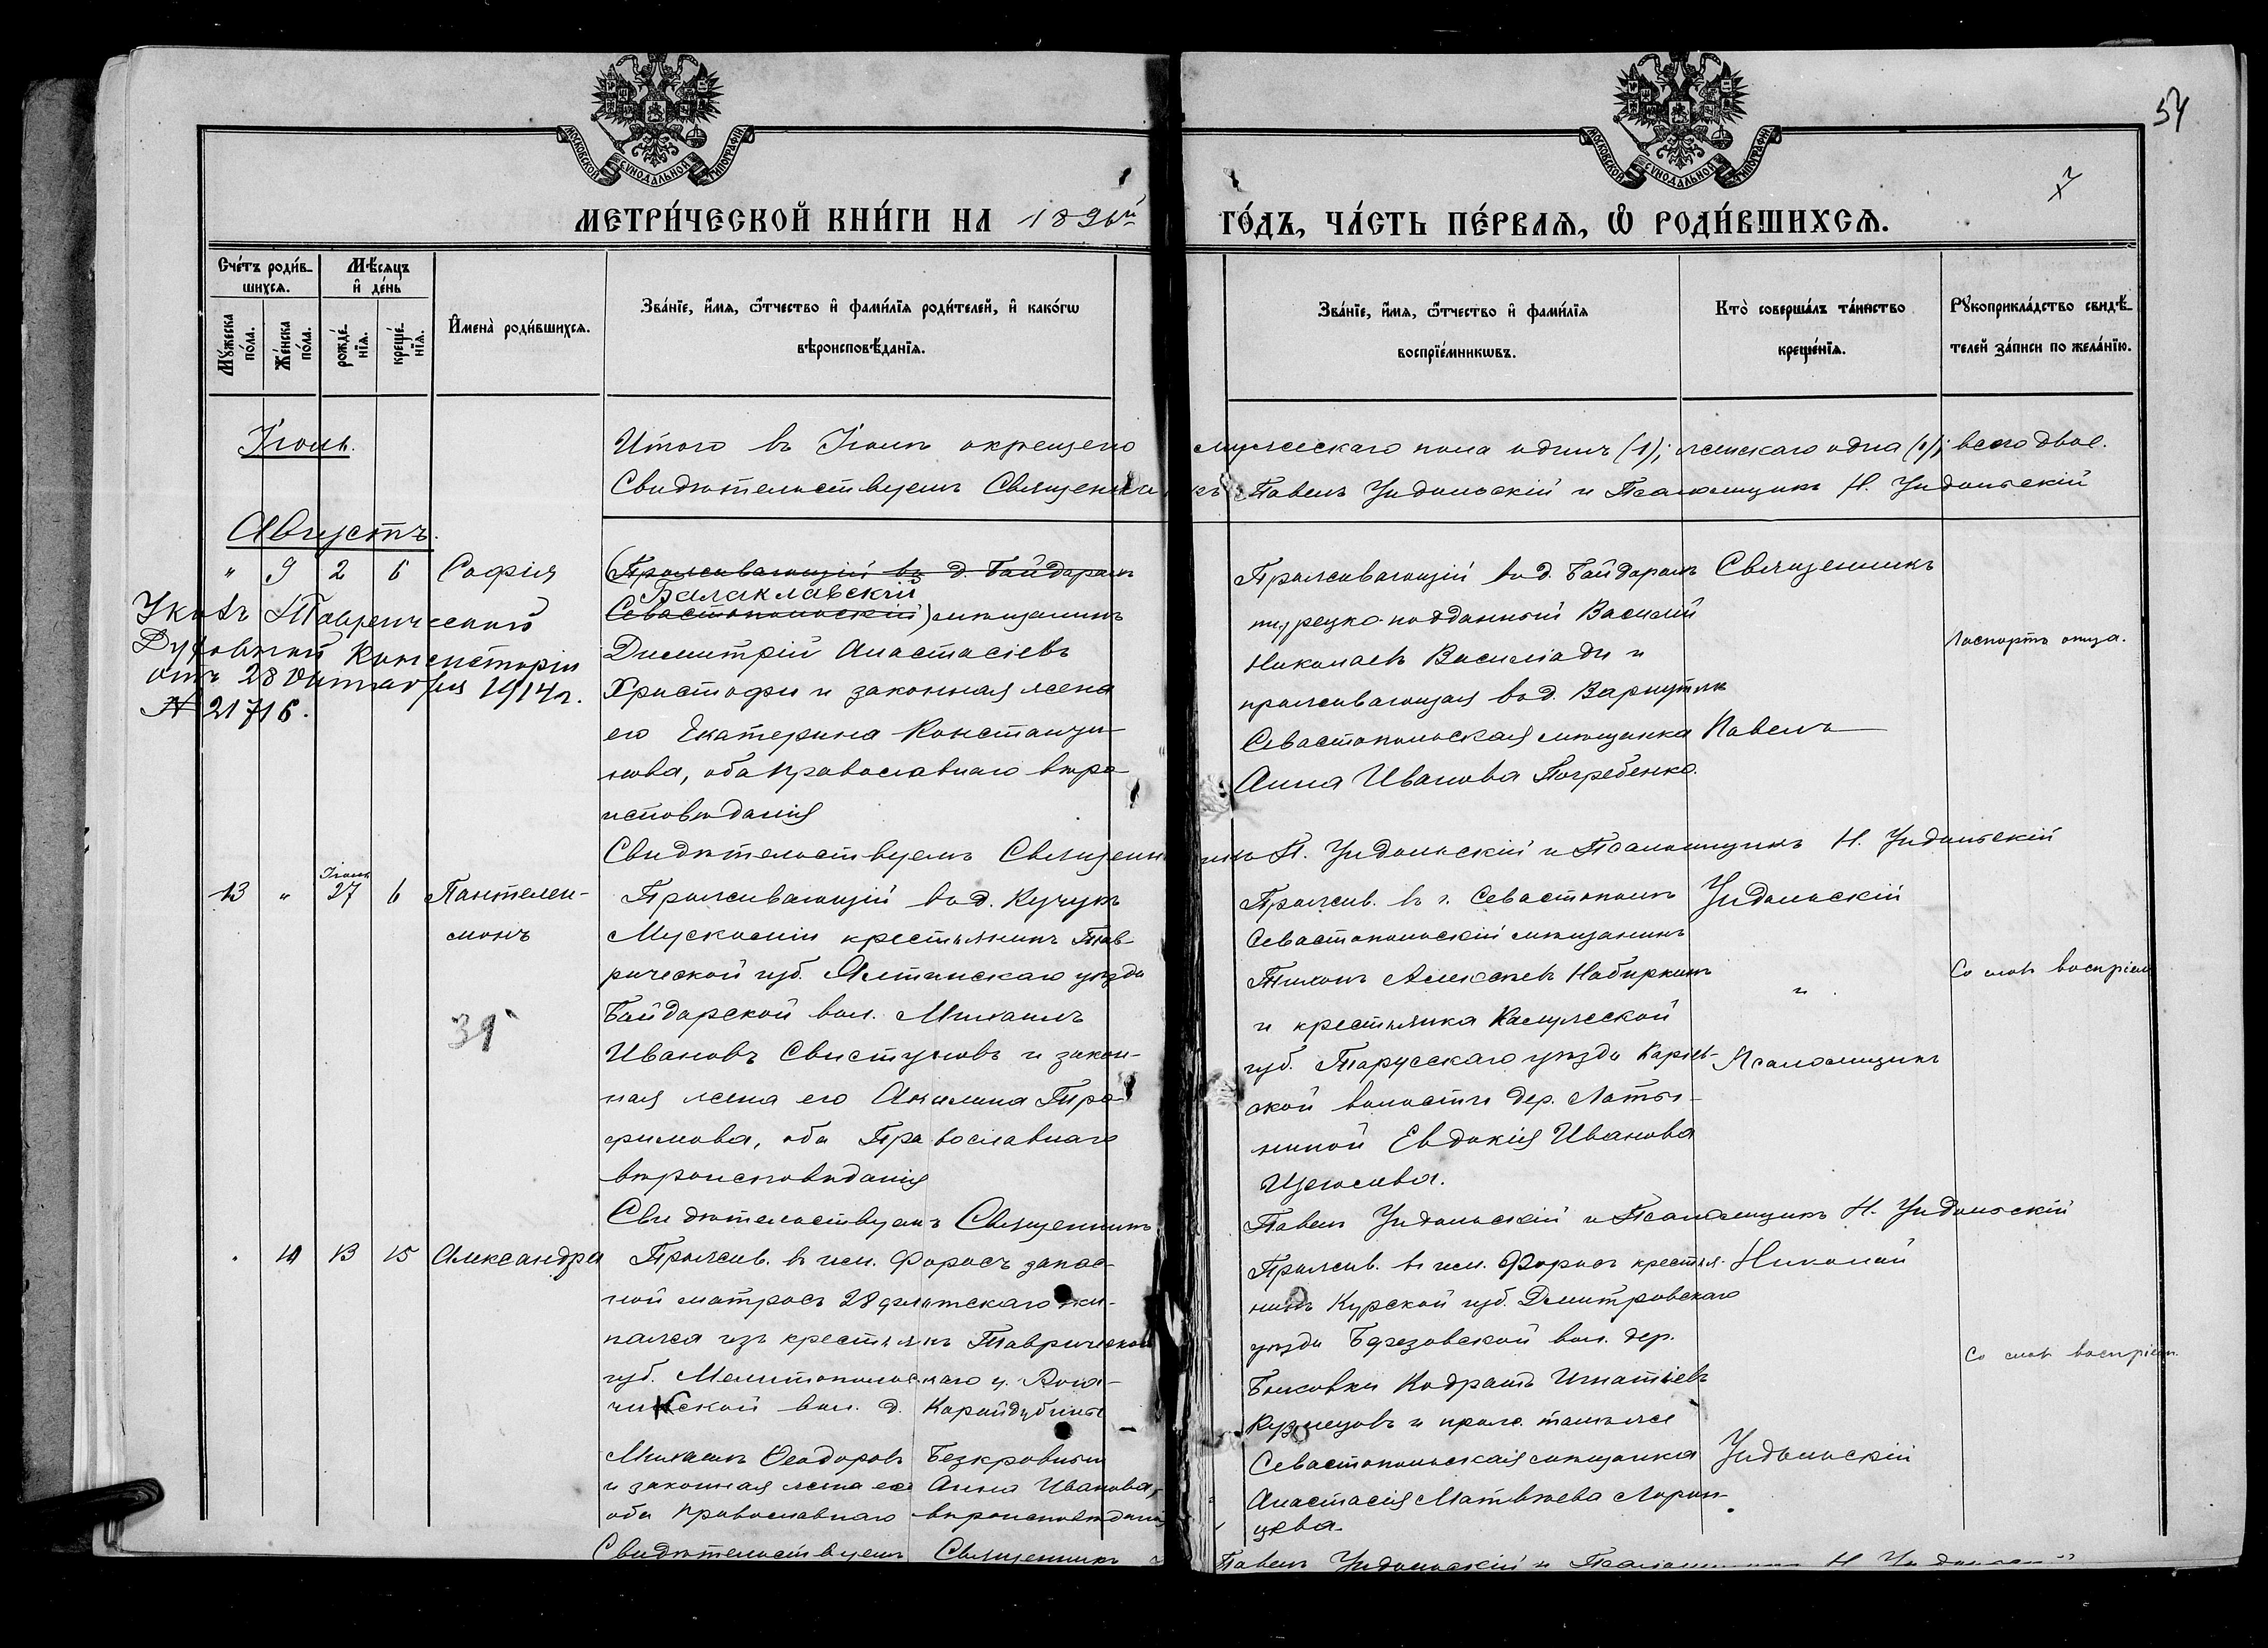 54
МОСКОВСКОЙ СѴНОДАЛЬНОЙ ТИПОГРАФІИ
МОСКОВСКОЙ СѴНОДАЛЬНОЙ ТИПОГРАФІИ
МЕТРИ́ЧЕСКОЙ КНИ́ГИ НА 1896й
ГО́ДЪ, ЧА́СТЬ ПЕ́РВАѦ, Ѡ҆ РОДИ́ВШИХСѦ.
Сче́тъ роди́в-
шихсѧ.
Мꙋ́жеска по́ла.
Же́нска по́ла.
Мѣ́сѧцъ
и҆ де́нь
рожде́-
нїѧ.
креще́-
нїѧ.
И҆мена̀ роди́вшихсѧ.
Зва́нїе, и҆́мѧ, ѻ҆́тчество и҆ фами́лїѧ роди́телей, и҆ како́гѡ
вѣроисповѣ́данїѧ.
Зва́нїе, и҆́мѧ, ѻ҆́тчество и҆ фами́лїѧ
воспрїе́мникѡвъ.
Кто̀ соверша́лъ та́инство
креще́нїѧ.
Рꙋкоприкла́дство свидѣ́-
телей за́писи по жела́нїю.
Іюль.
Итого въ Іюлѣ окрещено мужескаго пола одинъ (1); женскаго одна (1); всего двое.
Свидѣтельствуемъ Священникъ Павелъ Ундольскій и Псаломщикъ Н. Ундольскій
Августъ.
" 9 2 6 Софія
(Проживающій въ д. Байдарахъ
Балаклавскій
Севастопольскій) мѣщанинъ
Димитрій Анастасіевъ
Христофи и законная жена
его Екатерина Константи-
нова, оба православнаго вѣро-
исповѣданія
Указъ Таврической
Духовной Консисторіи
отъ 28 Октября 1914 г.
№ 21716.
Проживающій въ д. Байдарахъ
турецко-подданный Василій
Николаевъ Василіади и
проживающая въ д. Варнуткѣ
Севастопольская мѣщанка
Анна Иванова Погребенко.
Священникъ
Павелъ
Паспортъ отца.
Свидѣтельствуемъ Священникъ П. Ундольскій и Псаломщикъ Н. Ундольскій
13 " Іюль 27 6 Пантелеи-
монъ
31
Проживающій въ д. Кучукъ
Мускомія крестьянинъ Тав-
рической губ. Ялтинскаго уѣзда
Байдарской вол. Михаилъ
Ивановъ Свистуновъ и закон-
ная жена его Акилина Тро-
фимова, оба Православнаго
вѣроисповѣданія
Прожив. въ г. Севастополѣ
Севастопольскій мѣщанинъ
Тихонъ Алексѣевъ Набиркинъ
и крестьянка Калужской
губ. Тарусскаго уѣзда
ской волости дер. Латы-
ниной Евдокія Иванова
Щеголева.
Ундольскій
и
Псаломщикъ
Со словъ воспріем
Свидѣтельствуемъ Священникъ Павелъ Ундольскій и Псаломщикъ Н. Ундольскій
" 10 13 15 Александра
Прожив. въ им. Форосъ запас-
ной матросъ 28 флотскаго эки-
пажа изъ крестьянъ Таврической
губ. Мелитопольскаго у. Рога-
чикской вол. д. Карайдубины
Михаилъ Ѳеодоровъ Безкровный
и законная жена его Анна Иванова,
оба православнаго вѣроисповѣданія
Прожив. въ им. Форосъ крестья-
нинъ Курской губ. Дмитровскаго
уѣзда Березовской вол. дер.
Быковки Кодратъ Игнатьевъ
Кузнецовъ и прож. тамъ же
Севастопольская мѣщанка
Анастасія Матвѣева Ларин-
цева
Николай
Ундольскій
Со словъ воспріем.
Свидѣтельствуемъ Священникъ Павелъ Ундольскій и Псаломщикъ Н. Ундольскій